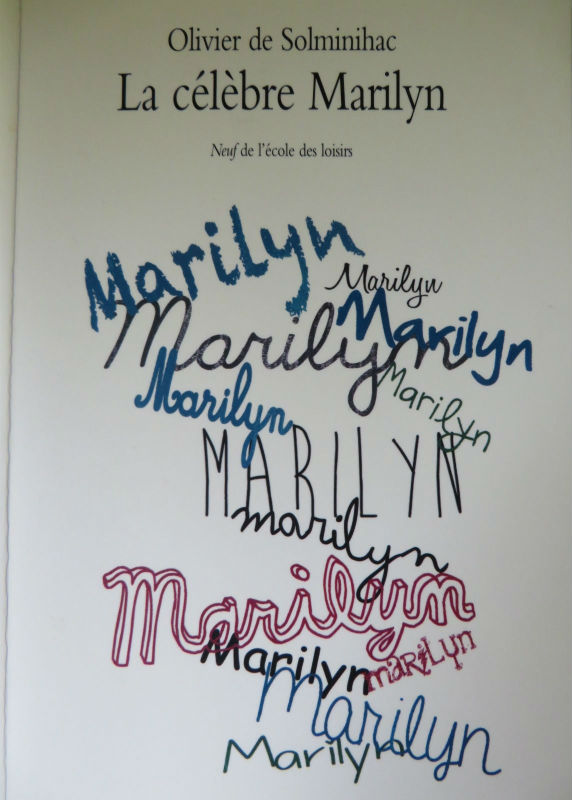 Olivier de Solminihac
La célèbre Marilyn
Neuf de l'école des loisirs
Marilyn
Marilyn
Marilyn
Marilyn
Marilyn
Marilyn
MARILYN
marilyn
Marilyn
Marilyn
maRiLyn
Marilyn
Marilyn